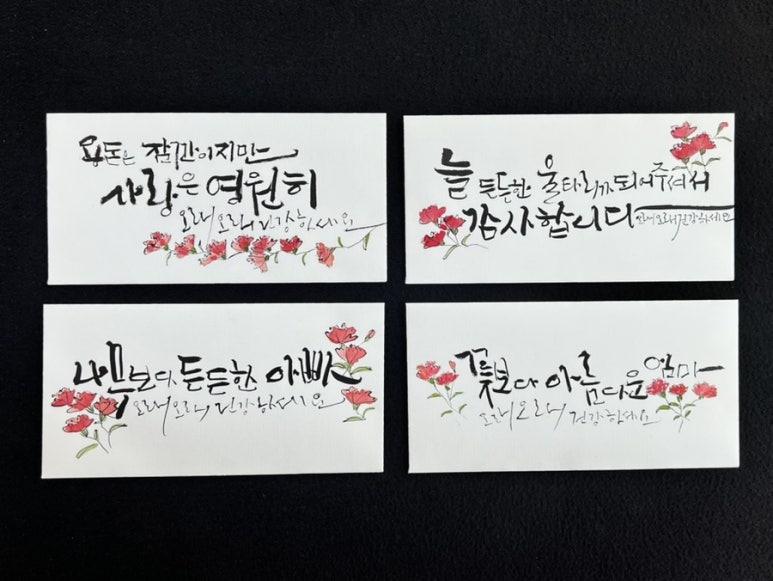 용돈은 잠깐이지만
사랑은 영원히
오래오래 건강하세요
늘 든든한 울타리가 되어주셔서
감사합니다 오래오래 건강하세요
나무보다 든든한 아빠
오래오래 건강하세요
꽃보다 아름다운 엄마
오래오래 건강하세요